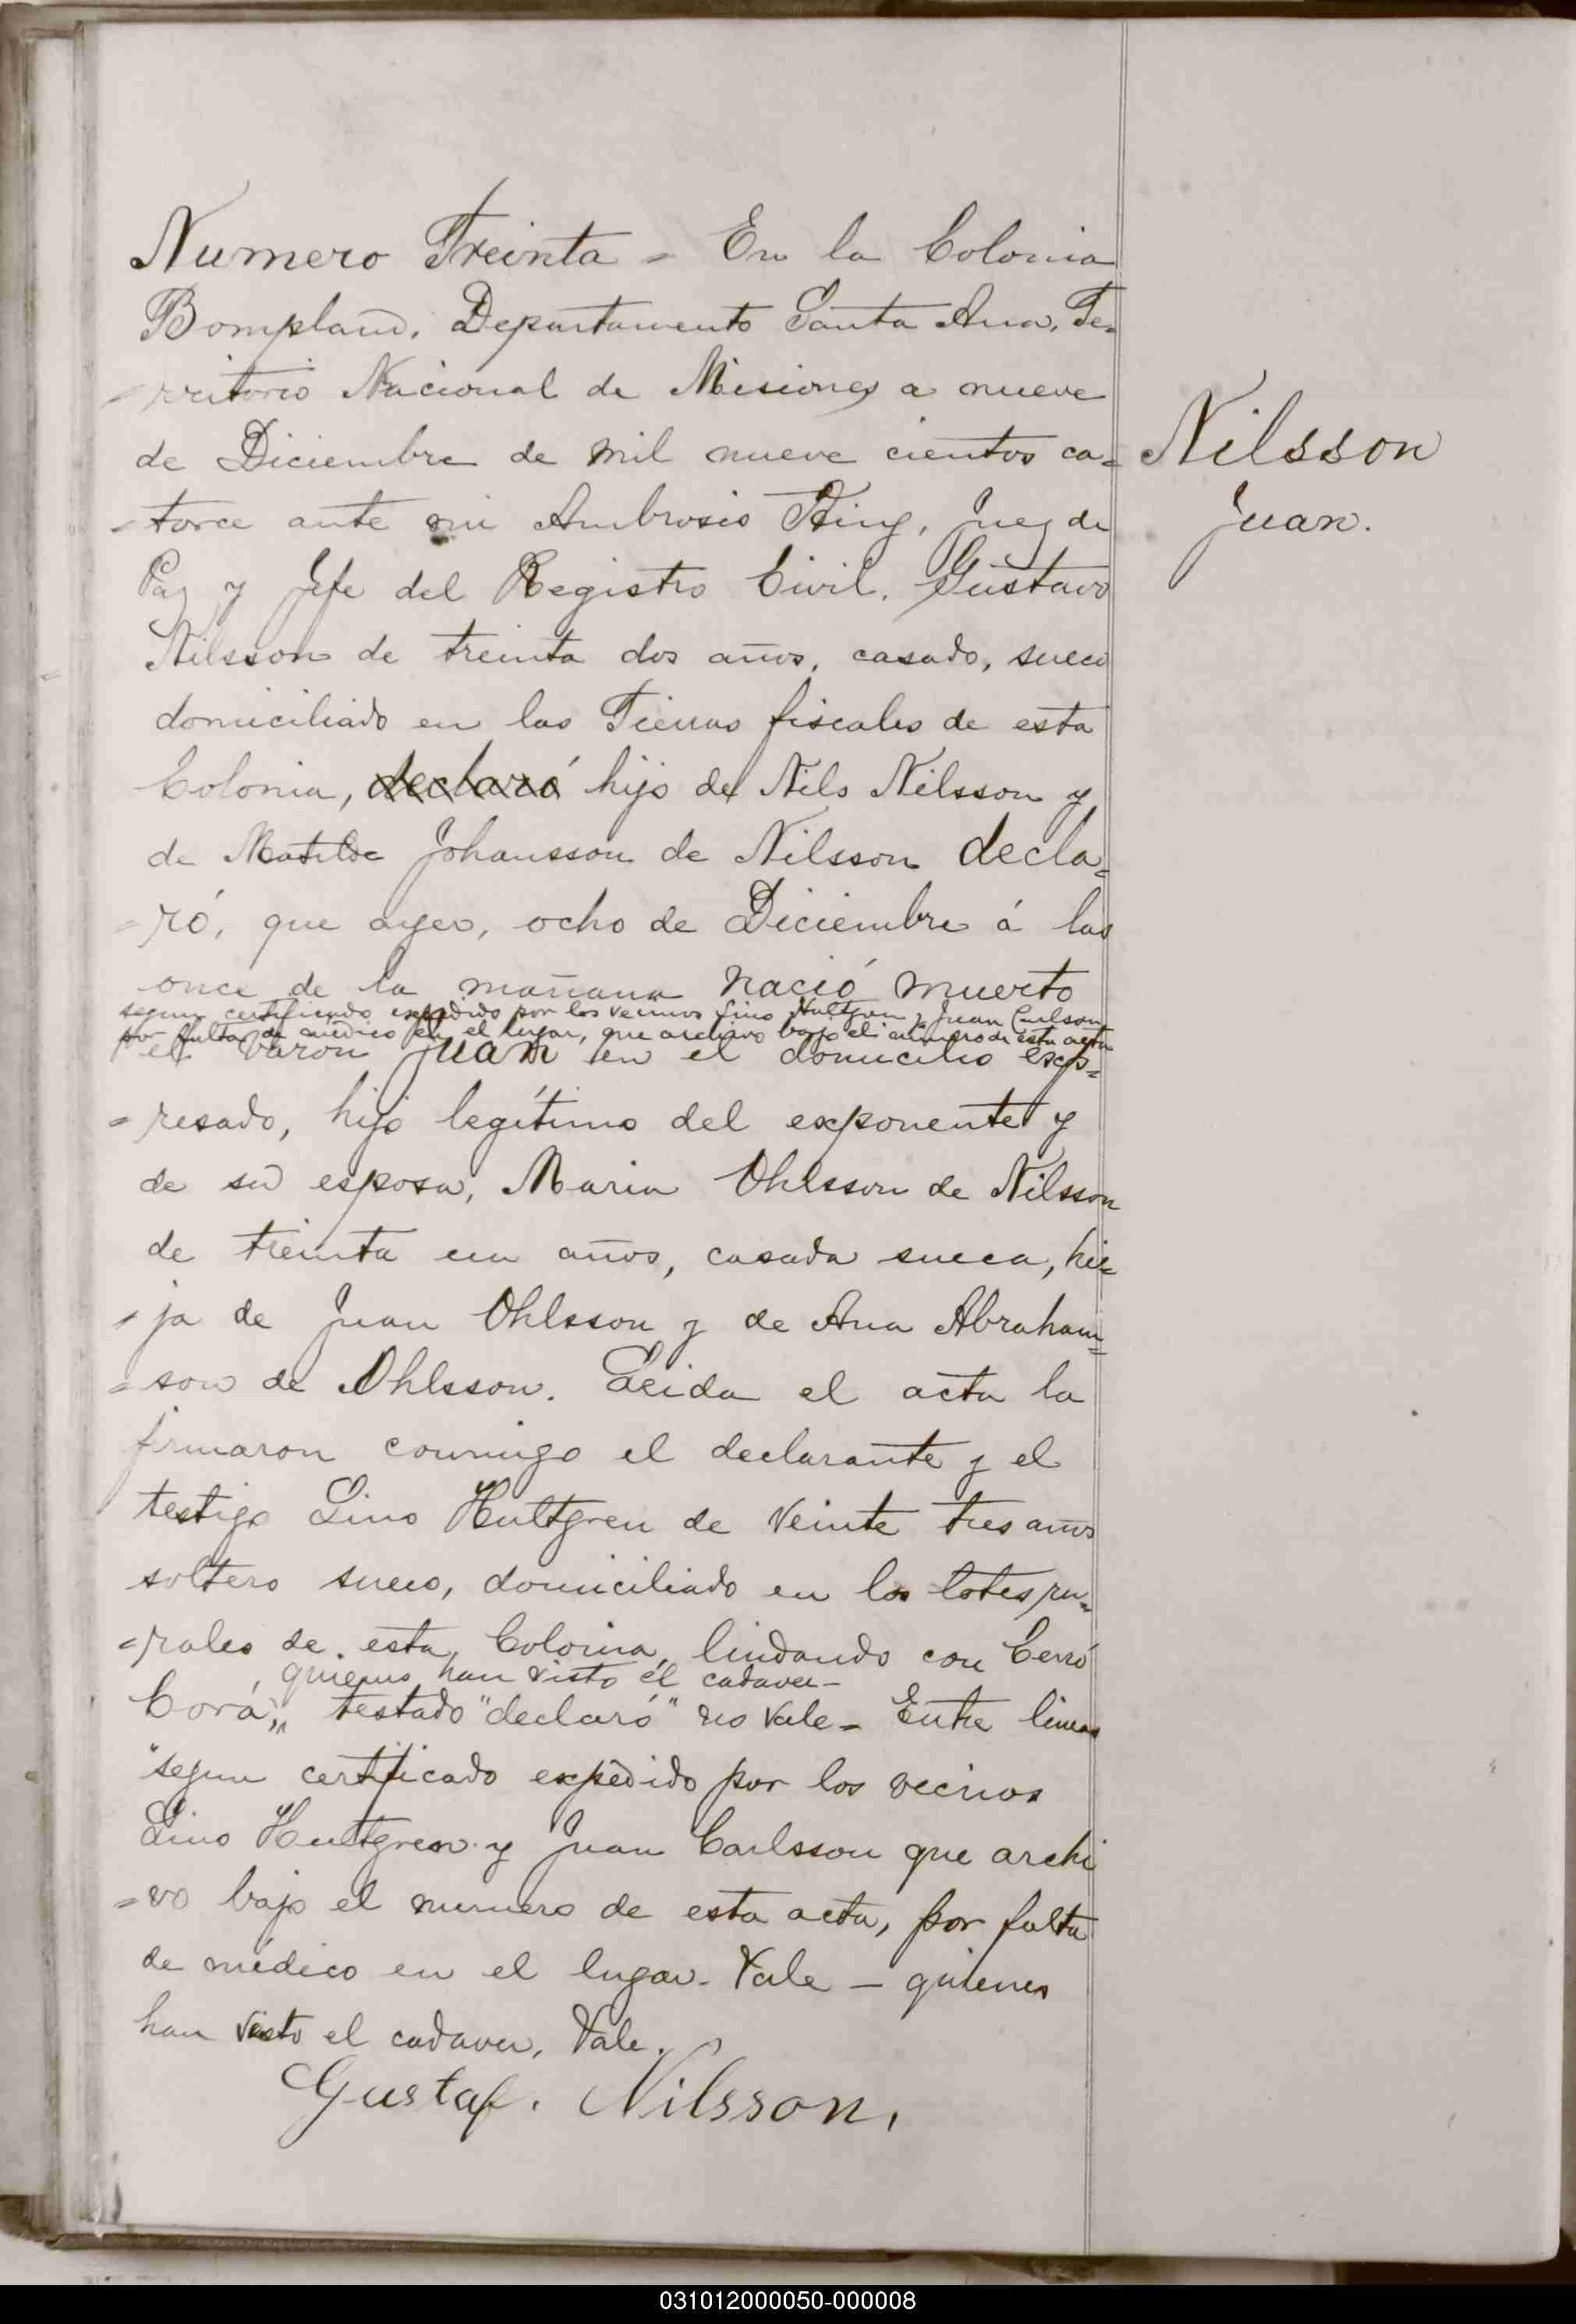 Numero Treinta = En la Colonia
Bompland, Departamento Santa Ana, Te=
=rritorio Nacional de Misiones a nueve
de Diciembre de mil nueve cientos ca=
=torce ante mi Ambrosio, Juez de
Paz y Jefe del Registro Civil. Gustavo
Nilsson de treinta dos años, casado, sueco
domiciliado en las Tierras fiscales de esta
Colonia, declaró hijo de Nils Nilsson y
de Matilde Johansson de Nilsson decla=
=ró, que ayer, ocho de Diciembre á las
once de la mañana nació muerto
segun certificado expedido por los vecinos Lino Hultgren y Juan Carlsson
por falta de médico en el lugar, que archivo bajo el numero de esta acta
el varon Juan en el domicilio exp=
=resado, hijo legítimo del exponente y
de su esposa, Maria Ohlsson de Nilsson
de treinta un años, casada sueca, hi=
=ja de Juan Ohlsson y de Ana Abraham=
=son de Ohlsson. Leida el acta la
firmaron conmigo el declarante y el
testigo Lino Hultgren de veinte tres años
soltero sueco, domiciliado en los lotes ru=
=rales de esta Colonia, lindando con Cerró
quienes han visto el cadaver –
Corá," testado "declaró" no vale = Entre lineas
"segun certificado expedido por los vecinos
Lino Hultgren y Juan Carlsson que archi
=vo bajo el numero de esta acta, por falta
de médico en el lugar. Vale – quienes
han visto el cadaver, Vale.
Gustaf. Nilsson.
Nilsson
Juan.
031012000050-000008